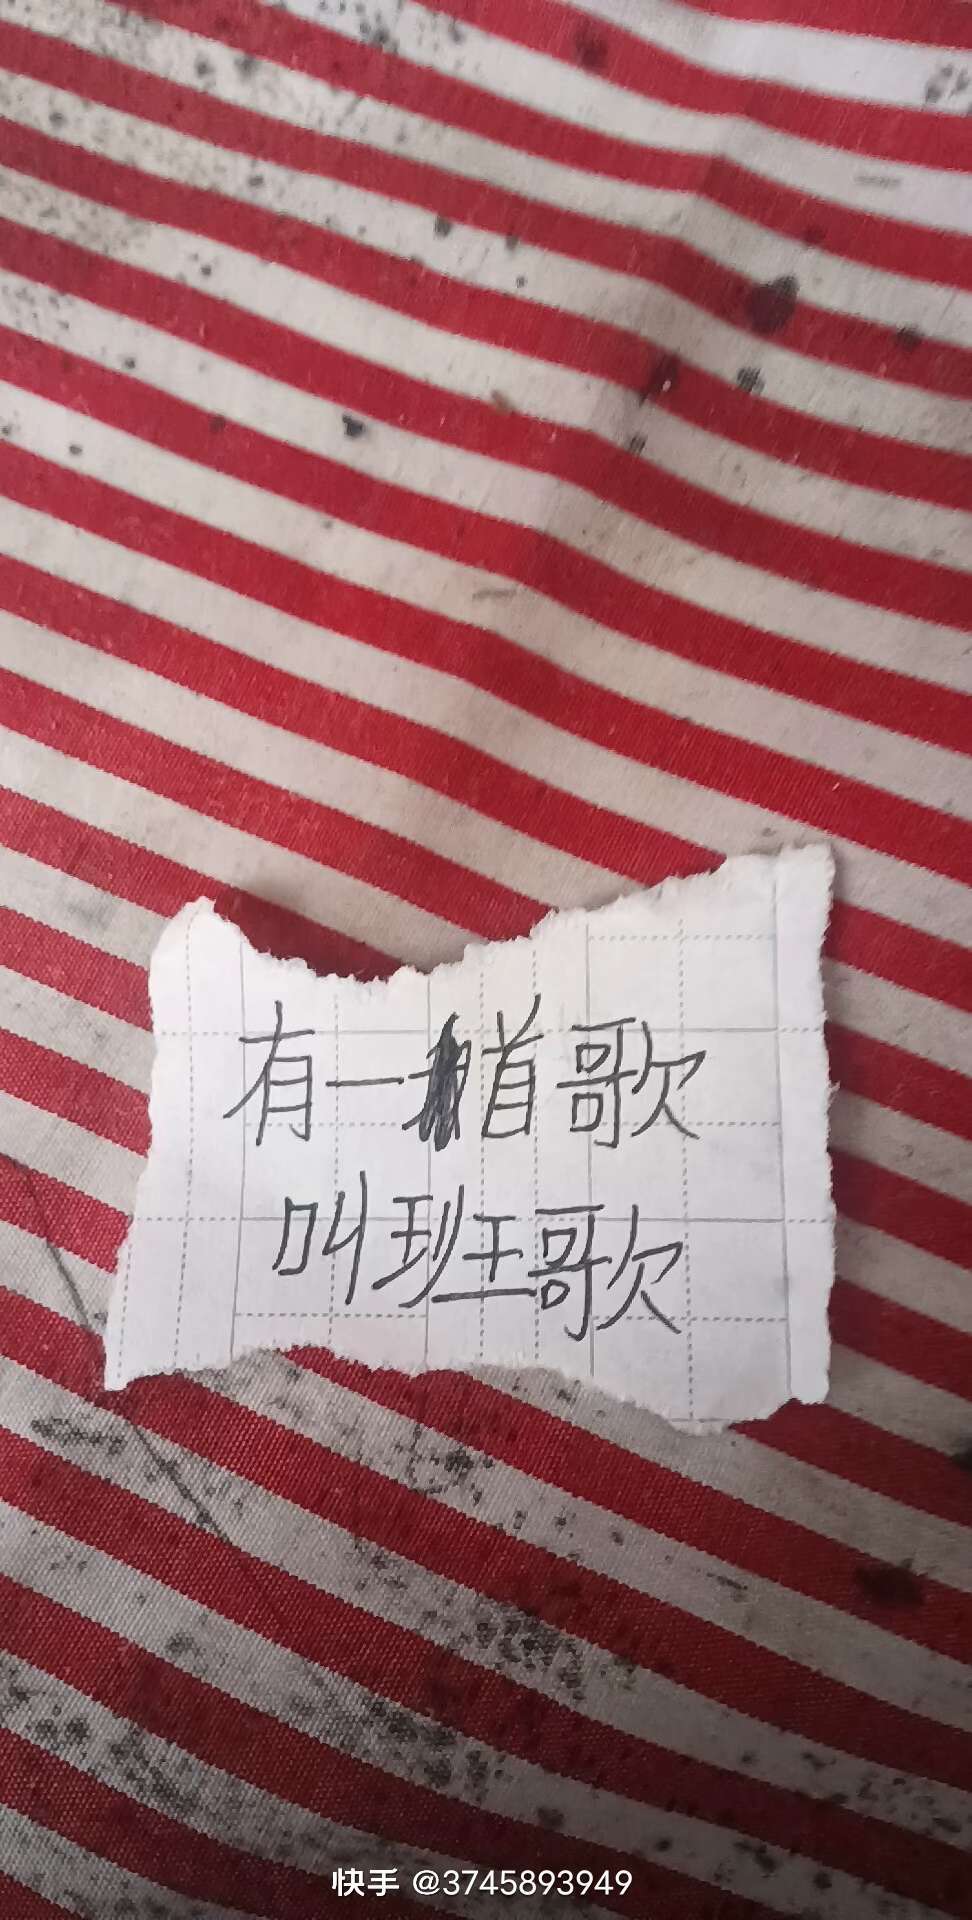 有一首歌
叫班歌
快手 @3745893949